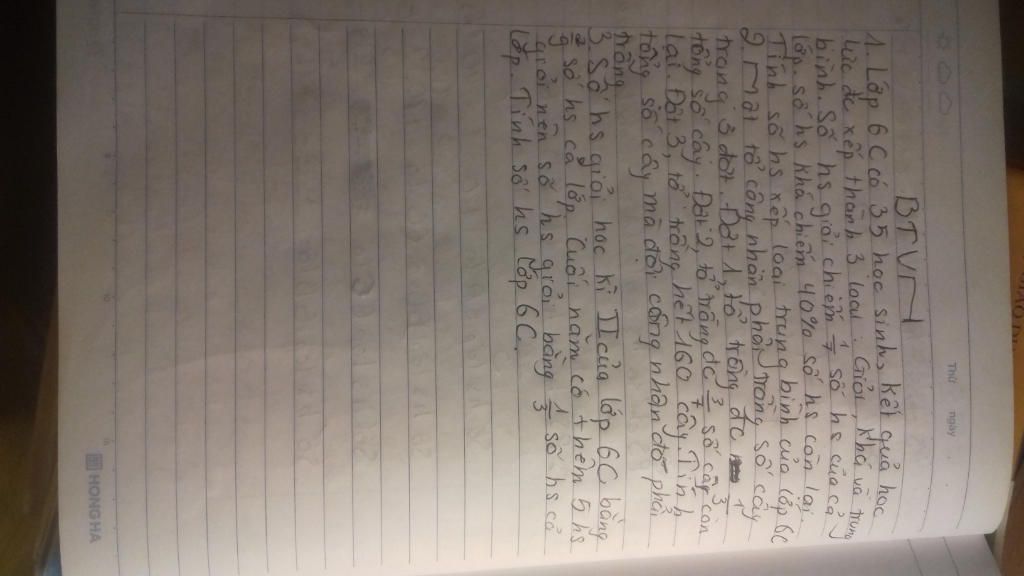 Thứ ngày
BTVN
1. Lớp 6C có 35 học sinh, kết quả học
lực đc xếp thành 3 loại: Giỏi, khá và trung
bình. Số hs giỏi chiếm 1/7 số hs của cả
lớp. số hs khá chiếm 40% số hs còn lại.
Tính số hs xếp loại trung bình của lớp 6C
2 Một tổ công nhân phải trồng số cây
trong 3 đợt. Đợt 1, tổ trồng đc
tổng số cây. Đợt 2, tổ trồng đc 3/7 số cây còn
lại. Đợt 3, tổ trồng hết 160 cây. Tính
tổng số cây mà đội công nhân đó phải
trồng
3. Số hs giỏi học kì II của lớp 6C bằng
2/9 số hs cả lớp. Cuối năm có thêm 5 hs
giỏi nên số hs giỏi bằng 1/3 số hs cả
lớp. Tính số hs lớp 6C.
HONG HA